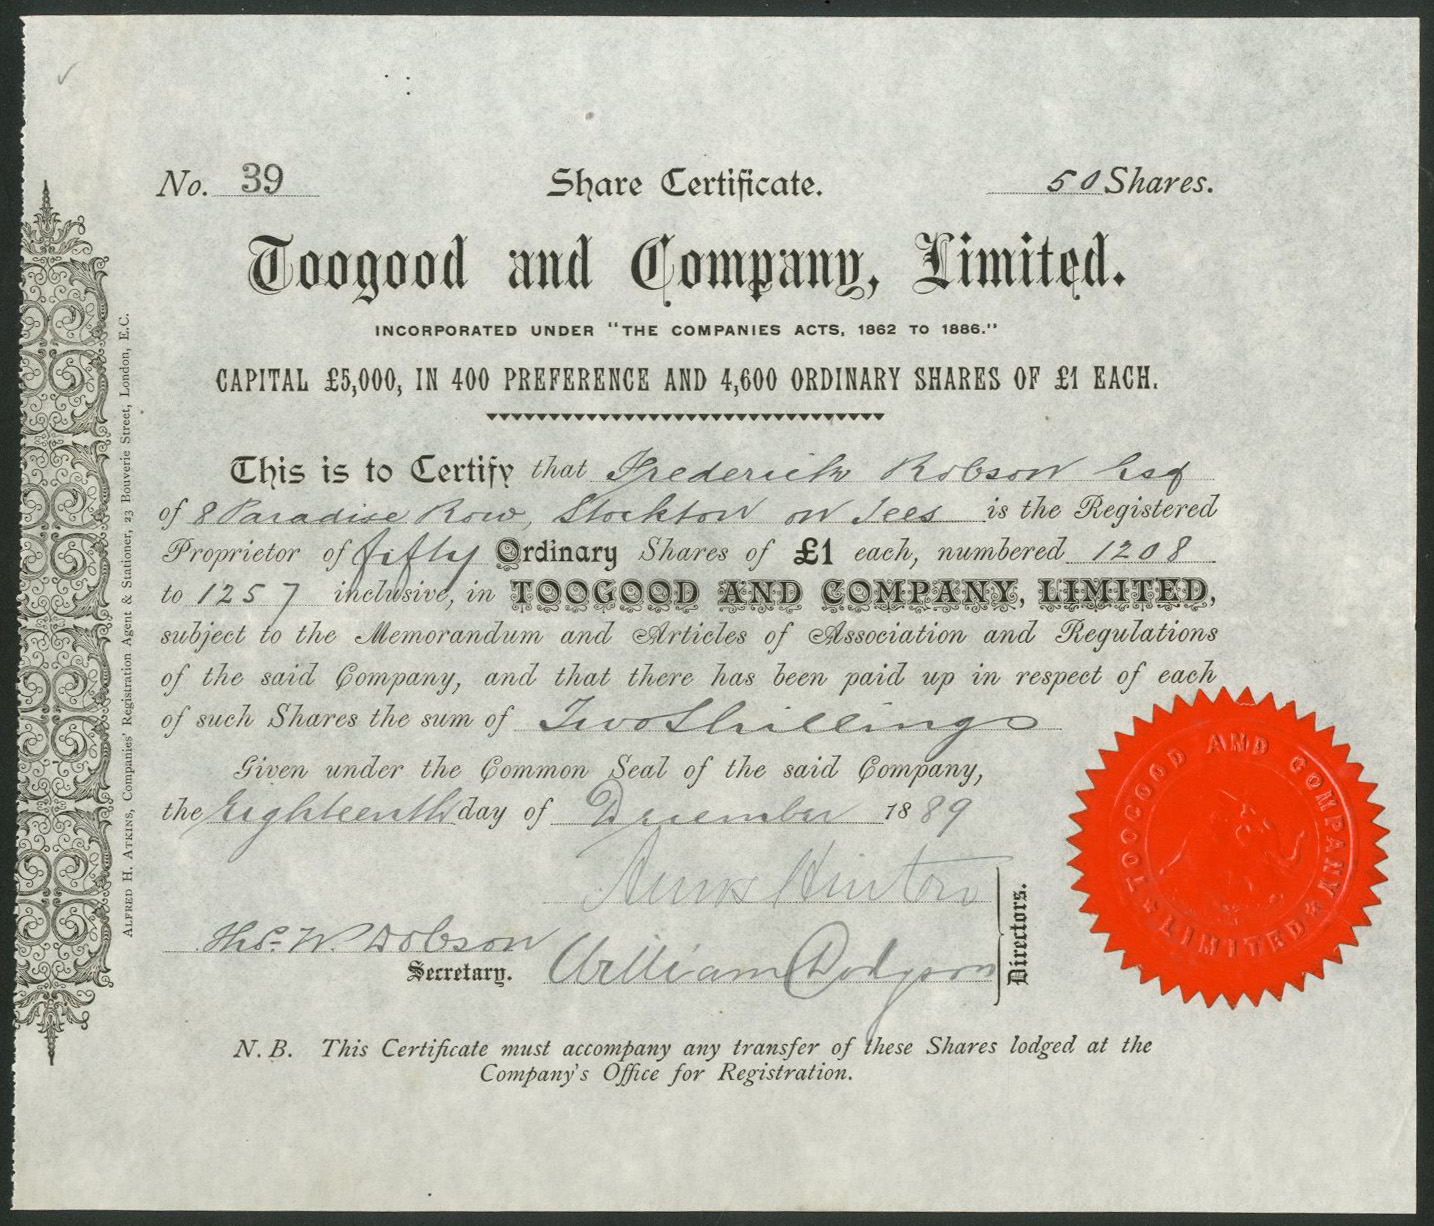 No. 39 Share Certificate. 50 Shares.
Toogood and Company, Limited.
INCORPORATED UNDER "THE COMPANIES ACTS, 1862 TO 1886."
CAPITAL £5,000, IN 400 PREFERENCE AND 4,600 ORDINARY SHARES OF £1 EACH.
This is to Certify that Frederick Robson Esq
of 8 Paradise Row, Stockton on Tees is the Registered
Proprietor of fifty Ordinary Shares of £1 each, numbered 1208
to 1257 inclusive, in TOOGOOD AND COMPANY, LIMITED,
subject to the Memorandum and Articles of Association and Regulations
of the said Company, and that there has been paid up in respect of each
of such Shares the sum of Two Shillings
Given under the Common Seal of the said Company,
the Eighteenth day of December 1889
Hinton
Thos. W. Dobson
Secretary.
William Dodgson
Directors.
N.B. This Certificate must accompany any transfer of these Shares lodged at the
Company's Office for Registration.
ALFRED H. ATKINS, Companies' Registration Agent & Stationer, 23 Bouverie Street, London, E.C.
TOOGOOD AND COMPANY
LIMITED